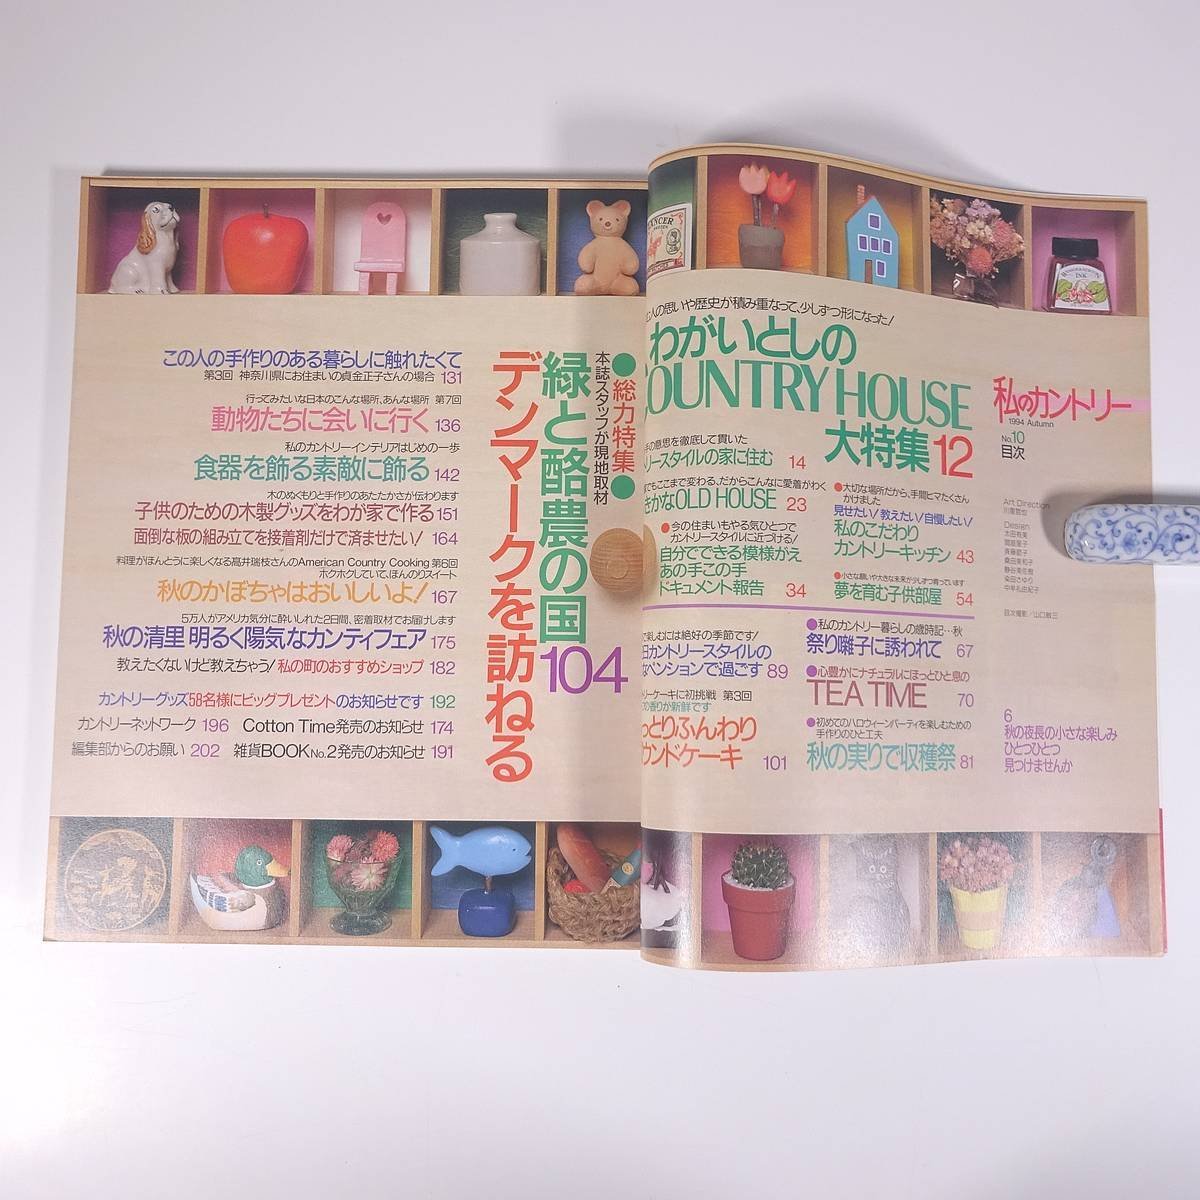 私のカントリー
1994 Autumn
No.10
目次
Art Direction
Design
6
秋の夜長の小さな楽しみ
ひとつひとつ
見つけませんか
人の思いや歴史が積み重なって、少しずつ形になった!
わがいとしの
COUNTRY HOUSE
大特集12
の意思を徹底して貫いた
リースタイルの家に住む 14
でもここまで変わる、だからこんなに愛着がわく
かなOLD HOUSE 23
●今の住まいもやる気ひとつで
カントリースタイルに近づける!
自分でできる模様がえ
あの手この手
ドキュメント報告 34
●大切な場所だから、手間ヒマたくさん
かけました
見せたい!教えたい!自慢したい!
私のこだわり
カントリーキッチン 43
●小さな願いや大きな未来が少しずつ育っています
夢を育む子供部屋 54
●私のカントリー暮らしの歳時記…秋
祭り囃子に誘われて 67
●心豊かにナチュラルにほっとひと息の
TEA TIME 70
●初めてのハロウィーンパーティを楽しむための
手作りのひと工夫
秋の実りで収穫祭 81
で楽しむには絶好の季節です!
日カントリースタイルの
なペンションで過ごす 89
リーケーキに初挑戦 第3回
の香りが新鮮です
っとりふんわり
ウンドケーキ 101
●総力特集●
本誌スタッフが現地取材
緑と酪農の国
デンマークを訪ねる
104
この人の手作りのある暮らしに触れたくて
第3回 神奈川県にお住まいの貞金正子さんの場合 131
行ってみたいな日本のこんな場所、あんな場所 第7回
動物たちに会いに行く 136
私のカントリーインテリアはじめの一歩
食器を飾る素敵に飾る 142
木のぬくもりと手作りのあたたかさが伝わります
子供のための木製グッズをわが家で作る 151
面倒な板の組み立てを接着剤だけで済ませたい! 164
料理がほんとうに楽しくなる高井瑞枝さんのAmerican Country Cooking 第6回
ホクホクしていて、ほんのりスイート
秋のかぼちゃはおいしいよ! 167
5万人がアメリカ気分に酔いしれた2日間、密着取材でお届けします
秋の清里 明るく陽気なカンティフェア 175
教えたくないけど教えちゃう!私の町のおすすめショップ 182
カントリーグッズ58名様にビッグプレゼントのお知らせです 192
カントリーネットワーク 196 Cotton Time発売のお知らせ 174
編集部からのお願い 202 雑貨BOOK No.2発売のお知らせ 191
INK